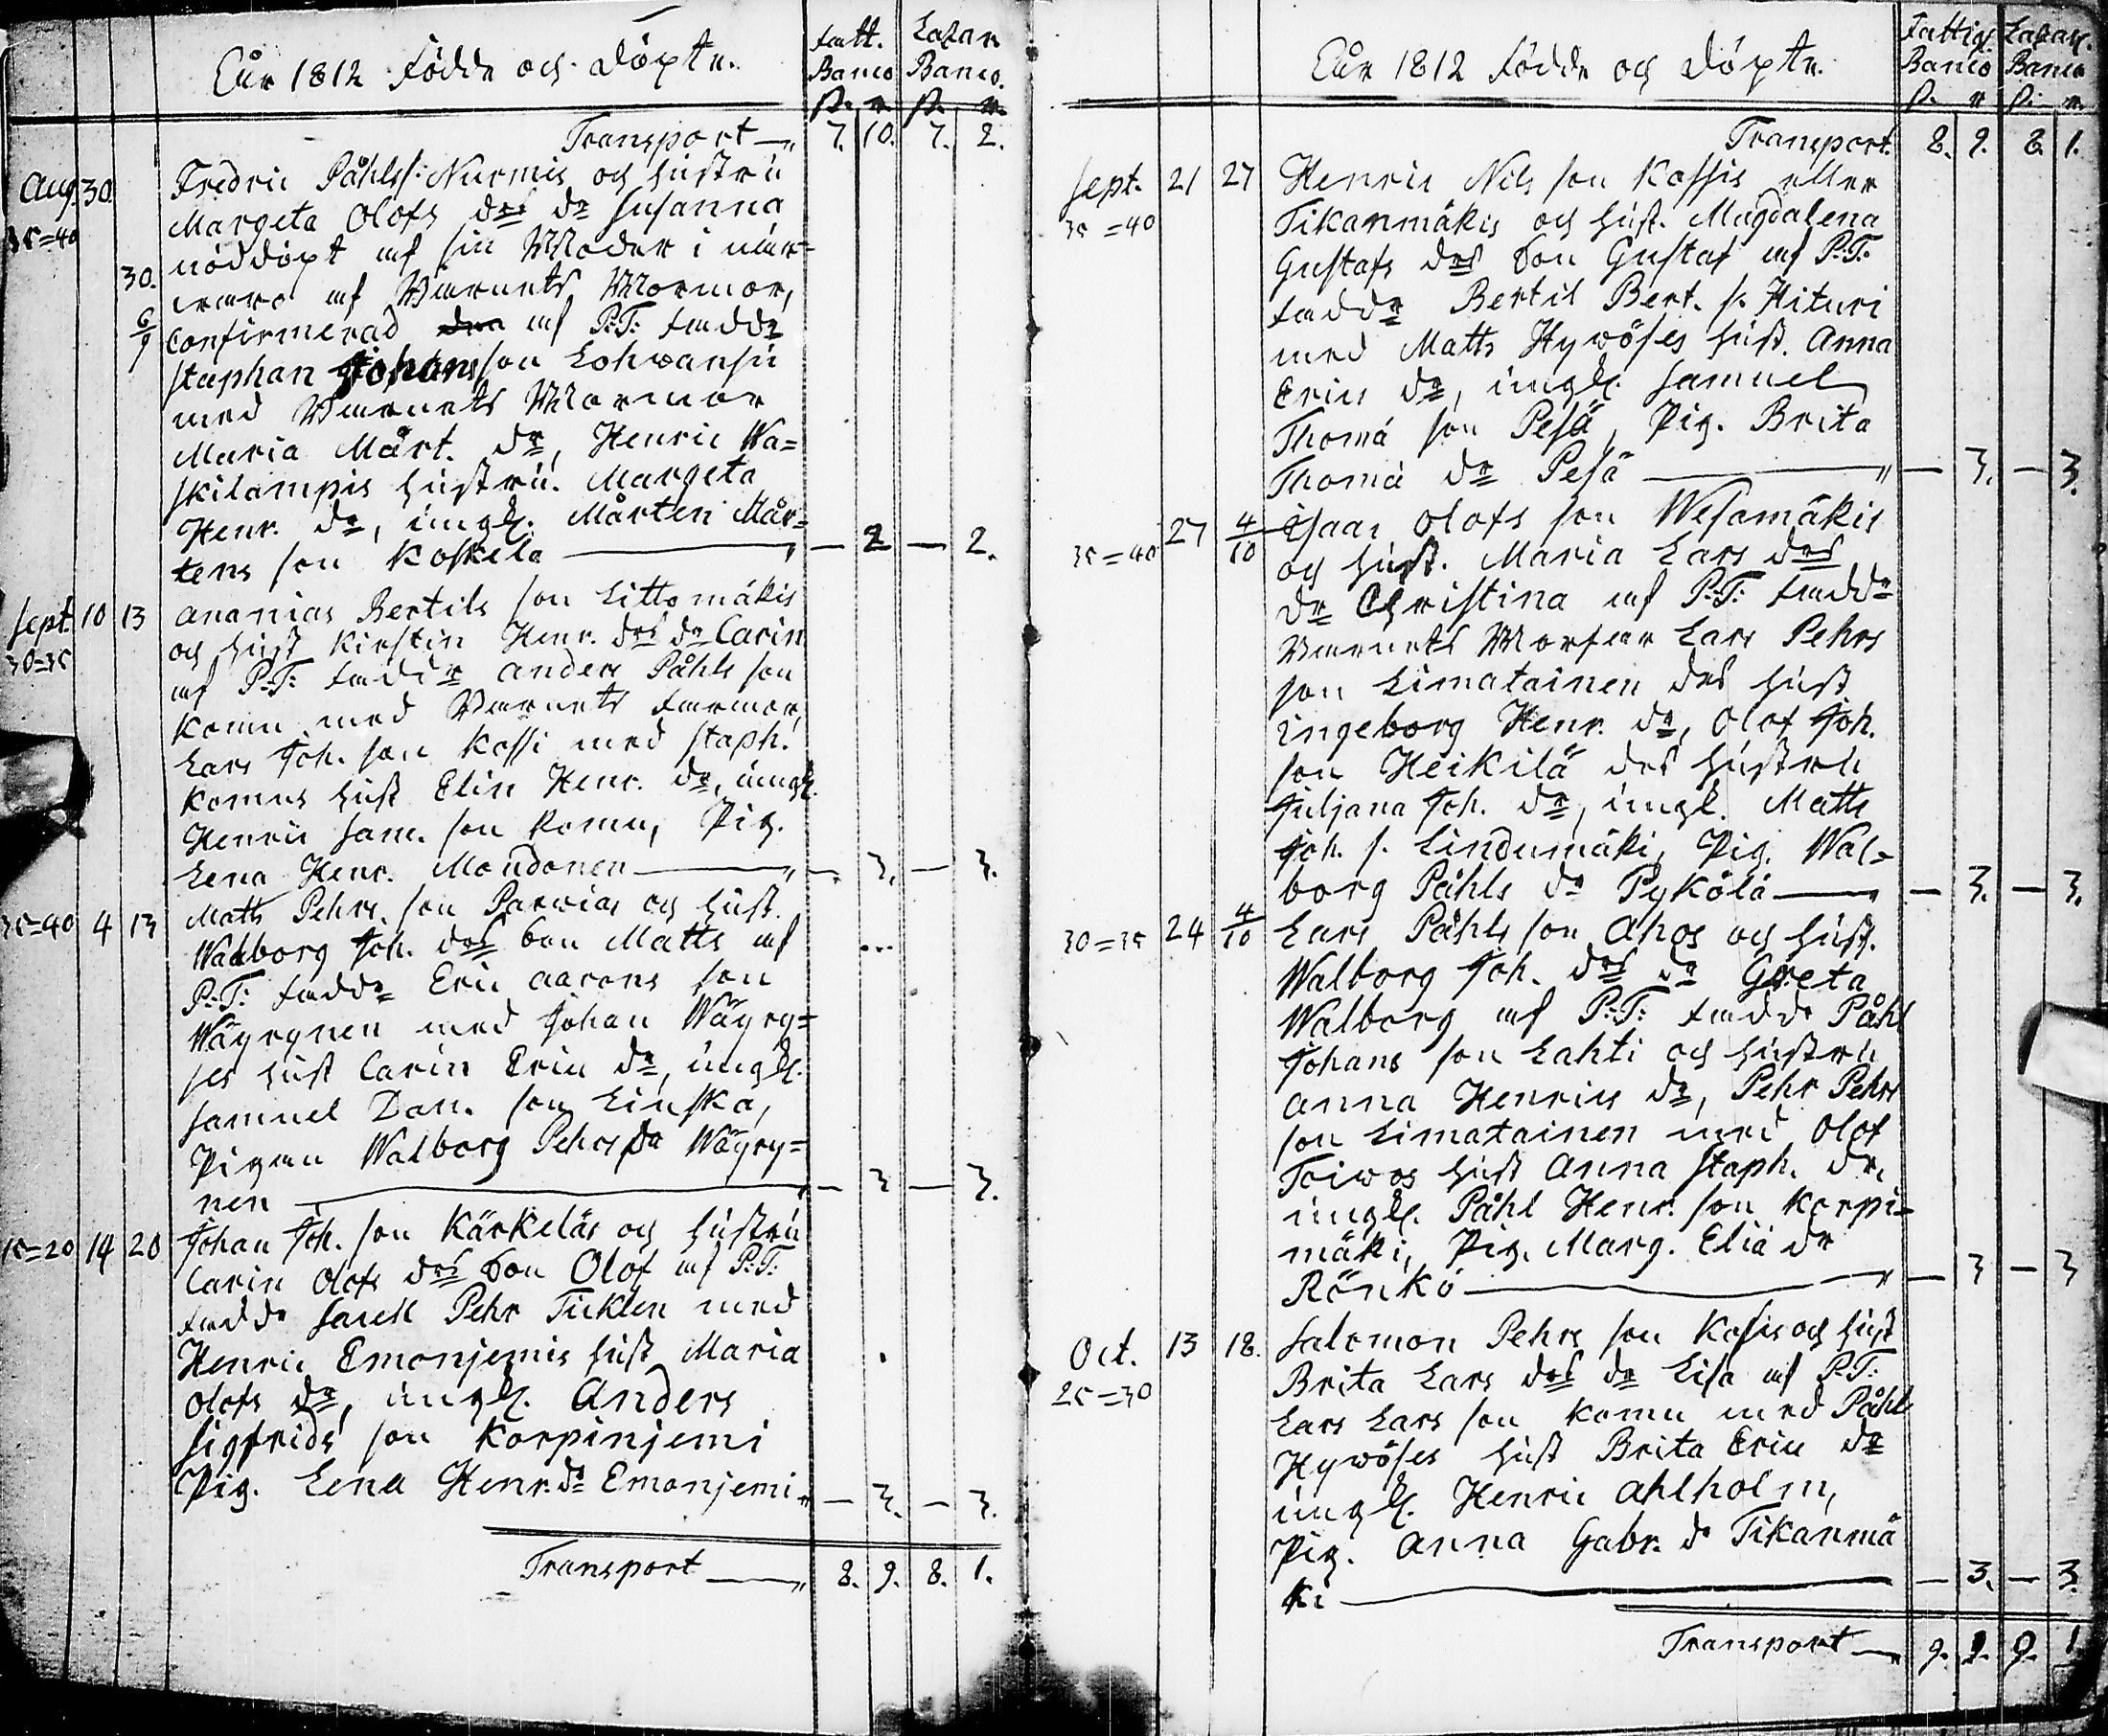 Åår 1812 Födde och Döpte.
Fatt. Lazar.
Banco Banco.
s. r. s. r.
Transport — 7. 10. 7. 2.
Aug. 30. Fredric Påhlss: Nurmis och hustru
35=40 Margeta Olofs drs dr Susanna
nöddöpt af sin Moder i när-
30. varo af Barnets Mormor,
6/9 Confirmerad af P:T: fadde
Staphan Johans son Lohvansu
med Barnets Mormor
Maria Mårt. dr, Henric Wa=
skilampis hustru. Margeta
Henr. dr, üngk. Mårten Mår=
tens son Koskela — 2 — 2.
Sept. 10 13 Ananias Bertils son Littomäkis
30=35 och hust Kirstin Henr. drs dr Carin
af P:T: faddr Anders Påhls son
Komu med Barnets farmor,
Lars Joh. son Kossi med Staph.
Komus hust Elin Henr. dr, üngk.
Henric Sam. son Komu, Pig.
Lena Henr. Moudonen — 3. — 3.
35=40 4 13 Matts Pehrs son Parvias och hust.
Walborg Joh. drs son Matts af
P:T: faddr Eric Aarons son
Wäyrynen med Johan Wäyry=
ses hust Carin Eric dr, üngk.
Samuel Dan. son Liuska,
Pigan Walborg Pehrs dr Wäyry=
nen — 3 — 3.
15=20 14 20 Johan Joh. son Kärkeläs och hustru
Carin Olofs drs son Olof af P:T:
fadde Sacell Pehr Ticklen med
Henric Emonjemis hust Maria
Olofs dr, üngk. Anders
Sigfrids son Korpinjemi
Pig. Lena Henr. dr Emonjemi — 3. — 3.
Transport — 8. 9. 8. 1.
Åår 1812 Födde och Döpte.
Fattig. Lazar.
Banco Banco
s. r. s. r.
Transport. 8. 9. 8. 1.
Sept. 21 27 Henric Nils son Kossis eller
35=40 Tikanmäkis och hust. Magdalena
Gustafs drs son Gustaf af P:T:
faddr Bertil Bert. s. Hituri
med Matts Hyvöses hust. Anna
Erics dr, üngk. Samuel
Thomä son Pesä, Pig. Brita
Thomä dr Pesä — 3. — 3.
35=40 27 4/10 Isaac Olofs son Wesamäkis
och hust. Maria Lars drs
dr Christina af P:T: faddr
Barnets Morfar Lars Pehrs
son Limatainen des hust
Ingeborg Henr. dr, Olof Joh.
son Heikilä des hustru
Juljana Joh. dr, üngk. Matts
Joh. s. Lindumäki, Pig. Wal=
borg Påhls dr Pykölä — 3. — 3.
30=35 24 4/10 Lars Påhls son Ahos och hust.
Walborg Joh. drs dr Greta
Walborg af P:T: faddr Påhl
Johans son Lahti och hustru
Anna Henrics dr, Pehr Pehrs
son Limatainen med Olof
Toivos hust Anna Staph. dr,
üngk. Påhl Henr. son Korpi=
mäki, Pig. Marg. Eliä dr
Rönkö — 3 — 3
Oct. 13 18. Salomon Pehrs son Kosis och hust
25=30 Brita Lars drs dr Lisa af P:T:
Lars Lars son Komu med Påhl
Hyvöses hust Brita Eric dr
üngk. Henric Ahlholm,
Pig. Anna Gabr. dr Tikanmä
ki — 3. — 3.
Transport — 9. 9. 9. 1.